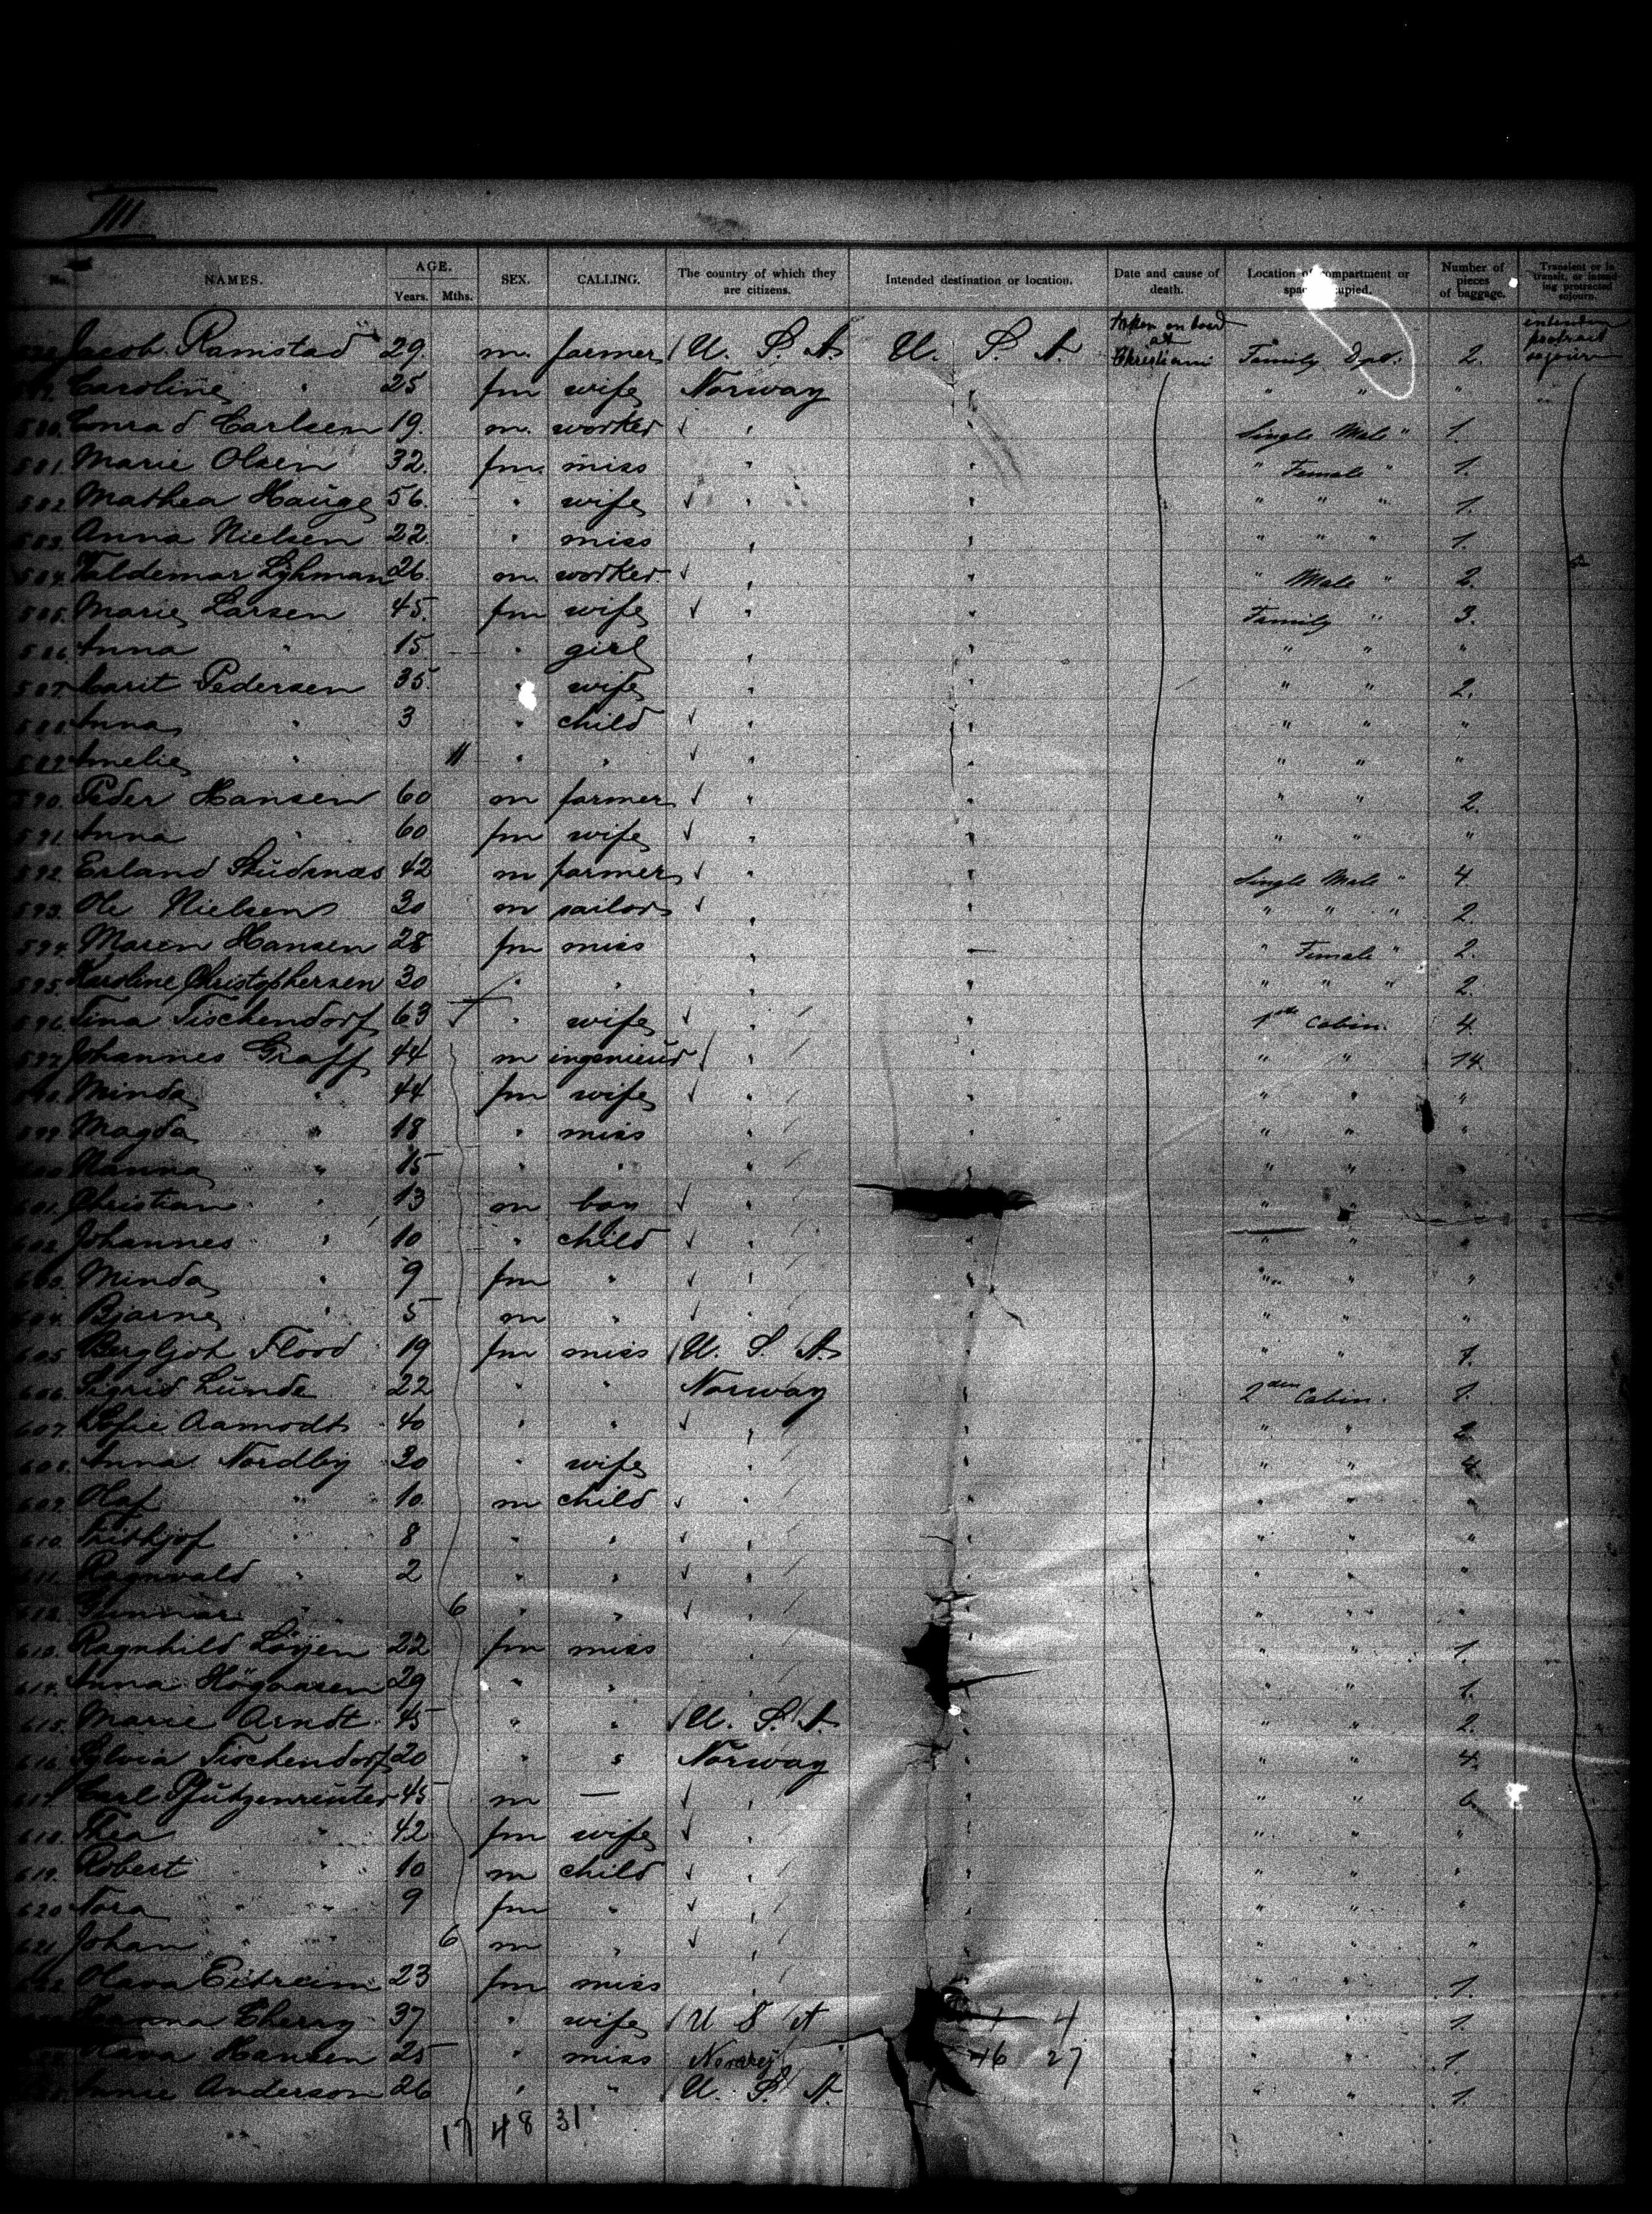 III
No. NAMES. AGE. Years. Mths. SEX. CALLING. The country of which they are citizens. Intended destination or location. Date and cause of death. Location of compartment or space occupied. Number of pieces of baggage. Transient or in transit, or intending protracted sojourn.
Jacob Ramstad 29 m. farmer U. S. A. U. S. A. taken on board at Christiania Family Dpt. 2. protract sojourn
Caroline " 25 fm wife Norway " " "
580. Conrad Carlsen 19. m. worker " " Single Male " 1.
581. Marie Olsen 32. fm. miss " " " Female " 1.
582. Mathea Hauge 56. " wife " " " " " 1.
583. Anna Nielsen 22. " miss " " " " " 1.
584. Valdemar Lyhman 26. m. worker " " " Male " 2.
585. Marie Larsen 45. fm wife " " Family " 3.
586. Anna " 15. " girl " " " " "
587. Marit Pedersen 35. " wife " " " " 2.
588. Anna " 3 " child " " " " "
589. Amelie " 11 " " " " " " "
590. Peder Hansen 60 m farmer " " " " 2.
591. Anna " 60 fm wife " " " " "
592. Erland Studsnæs 42 m farmer " " Single Male " 4.
593. Ole Nielsen 30 m sailor " " " " " 2.
594. Maren Hansen 28 fm miss " — " Female " 2.
595. Karoline Christophersen 30 " " " " " " " 2.
596. Tina Tischendorf 63 " wife " " 1st Cabin. 4.
597. Johannes Graff 44 m ingenieur " " " " 14
598. Minda " 44 fm wife " " " " "
599. Magda " 18 " miss " " " " "
600. Nanna " 15 " " " " " "
601. Christian " 13 m boy " " " "
602. Johannes " 10 " child " " " " "
603. Minda " 9 fm " " " " " "
604. Bjarne " 5 m " " " " " "
605. Bergljot Flood 19 fm miss U. S. A. " " " 1.
606. Sigrid Lunde 22 " " Norway " 2den Cabin. 1.
607. Sofie Aamodt 40 " " " " " " 2.
608. Anna Nordby 30 " wife " " " " 4.
609. Olaf " 10 m child " " " " "
610. Frithjof " 8 " " " " " " "
611. Ragnvald " 2 " " " " " " "
612. Gunnar " 6 " " " " " " "
613. Ragnhild Löyen 22 fm miss " " " 1.
614. Anna Högaasen 29 " " " " " 1.
615. Marie Arndt 45 " " U. S. A. " " " 2.
616. Sylvia Tischendorf 20 " " Norway " " " 4.
617. Carl Pfützenreuter 45 m — " " " " 6.
618. Thea " 42 fm wife " " " " "
619. Robert " 10 m child " " " " "
620. Nora " 9 fm " " " " " "
621. Johan " 6 m " " " " " "
Olava Eitreim 23 fm miss " " " 1.
Cherny 37 " wife U S A 4 " " 1.
Hansen 25 " miss Norway 46 27 " " 1.
Annie Anderson 26 " " U. S. A. " " 1.
17 48 31